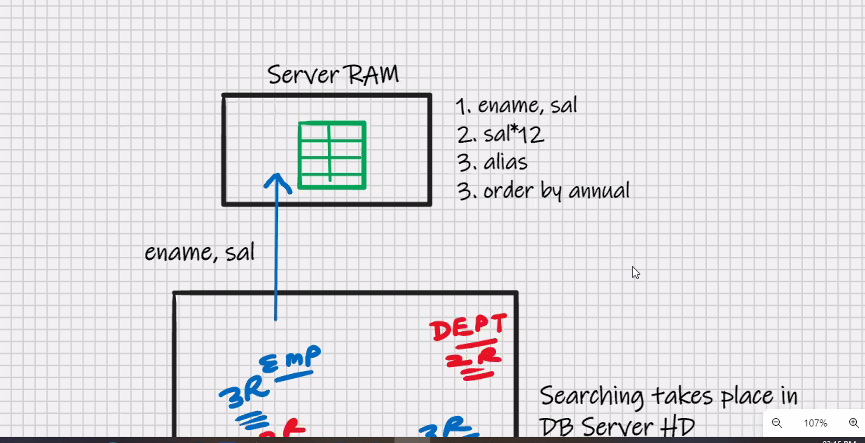 Server RAM
1. ename, sal
2. sal*12
3. alias
3. order by annual
ename, sal
DEPT
2 R
EMP
3R
Searching takes place in
DB Server HD
3R
R
107%